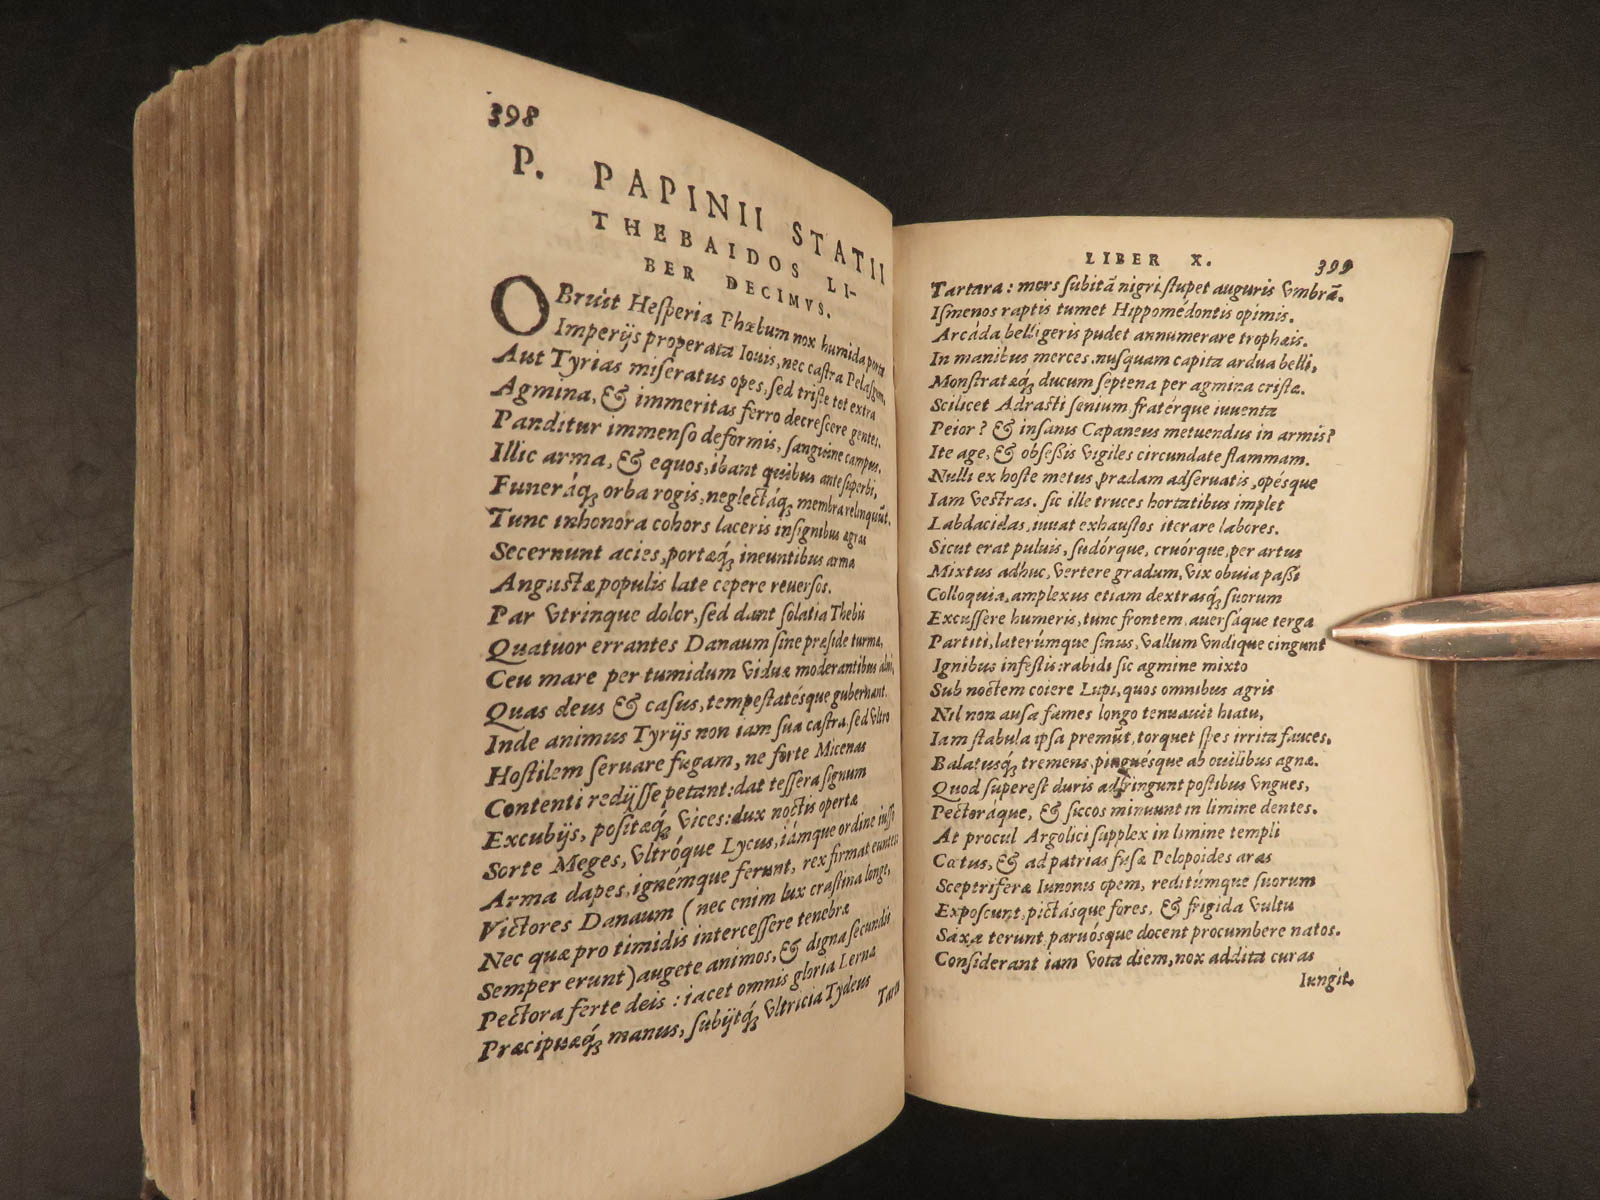 398
P. PAPINII STATII
THEBAIDOS LI-
BER DECIMVS.
OBruit Hesperia Phœbum nox humida porta
Imperijs properata Iouis, nec castra Pelasgum,
Aut Tyrias miseratus opes, sed triste tot extra
Agmina, & immeritas ferro decrescere gentes.
Panditur immenso deformis, sanguine campus.
Illic arma, & equos, ibant quibus ante superbi,
Funeráq; orba rogis, neglectáq; membra relinquũt.
Tunc inhonora cohors laceris insignibus agras
Secernunt acies, portæq; ineuntibus arma
Angustæ populis late cepere reuersos.
Par vtrinque dolor, sed dant solatia Thebis
Quatuor errantes Danaum sine præside turmæ,
Ceu mare per tumidum viduæ moderantibus alni,
Quas deus & casus, tempestatésque gubernant.
Inde animus Tyrijs non iam sua castra, sed vltro
Hostilem seruare fugam, ne forte Micenas
Contenti redijsse petant: dat tessera signum
Excubijs, positæq́; vices: dux noctis opertæ
Sorte Meges, vltróque Lycus, iámque ordine iussi
Arma dapes, ignémque ferunt, rex firmat euntes
Victores Danaum (nec enim lux crastina longe,
Nec quæ pro timidis intercessere tenebræ
Semper erunt) augete animos, & digna secundis
Pectora ferte deis: iacet omnis gloria Lernæ
Præcipuæq́; manus, subijtq́; vltricia Tydeus
Tarta
LIBER X.
399
Tartara: mors subitã nigri stupet auguris vmbrã.
Ismenos raptis tumet Hippomédontis opimis.
Arcáda belligeris pudet annumerare trophæis.
In manibus merces, nusquam capita ardua belli,
Monstratæq́; ducum septena per agmina cristæ.
Scilicet Adrasti senium, fratérque iuuenta
Peior? & insanis Capaneus metuendus in armis?
Ite age, & obsessis vigiles circundate flammam.
Nulli ex hoste metus, prædam adseruatis, opésque
Iam vestras. sic ille truces hortatibus implet
Labdacidas, iuuat exhaustos iterare labores.
Sicut erat puluis, sudórque, cruórque, per artus
Mixtus adhuc, vertere gradum, vix obuia passi
Colloquia, amplexus etiam dextrasq́; suorum
Excussere humeris, tunc frontem, auersáque terga
Partiti, laterúmque sinus, vallum vndique cingunt
Ignibus infestis: rabidi sic agmine mixto
Sub noctem coiere Lupi, quos omnibus agris
Nil non ausa fames longo tenuauit hiatu,
Iam stabula ipsa premũt, torquet spes irrita fauces.
Balatusq́; tremens, pinguésque ab ouilibus agnæ.
Quod superest duris adfringunt postibus vngues,
Pectoráque, & siccos minuunt in limine dentes.
At procul Argolici supplex in limine templi
Cœtus, & ad patrias fusæ Pelopoides aras
Sceptriferæ Iunonis opem, reditúmque suorum
Exposcunt, pictásque fores, & frigida vultu
Saxa terunt paruósque docent procumbere natos.
Considerant iam vota diem, nox addita curas
Iungit.